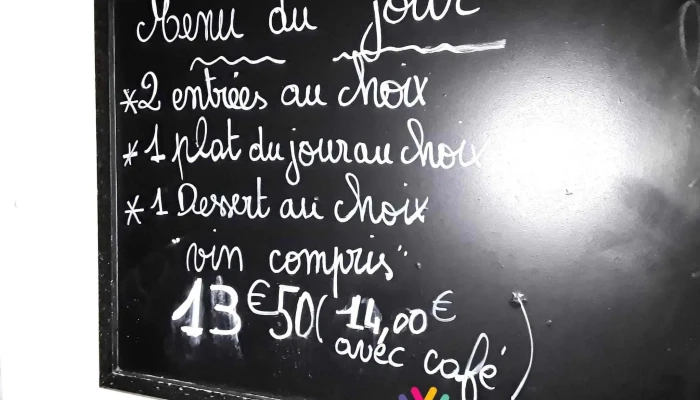 Menu du jour
*2 entrées au choix
*1 plat du jour au choix
*1 Dessert au choix
"vin compris"
13€50 (14,00€
avec café)